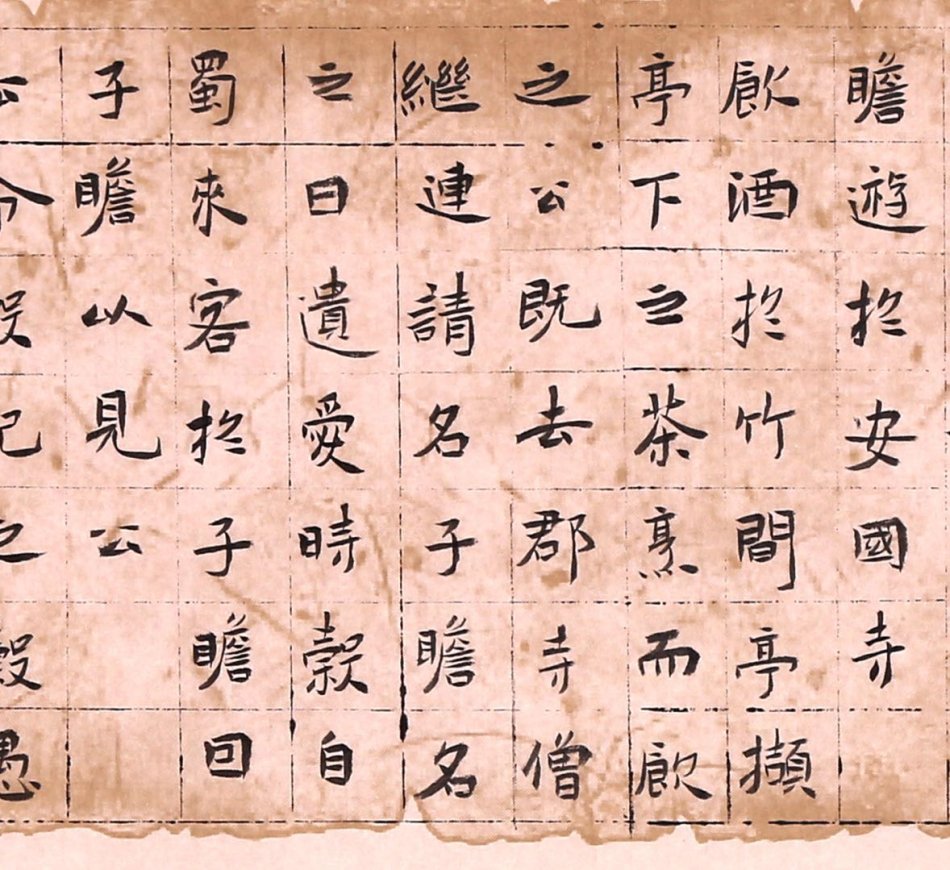 瞻遊於安國寺
飲酒於竹間亭擷
亭下之茶烹而飲
之公既去郡寺僧
繼連請名子瞻名
之曰遺愛時穀自
蜀來客於子瞻回
子瞻以見公
公之愚